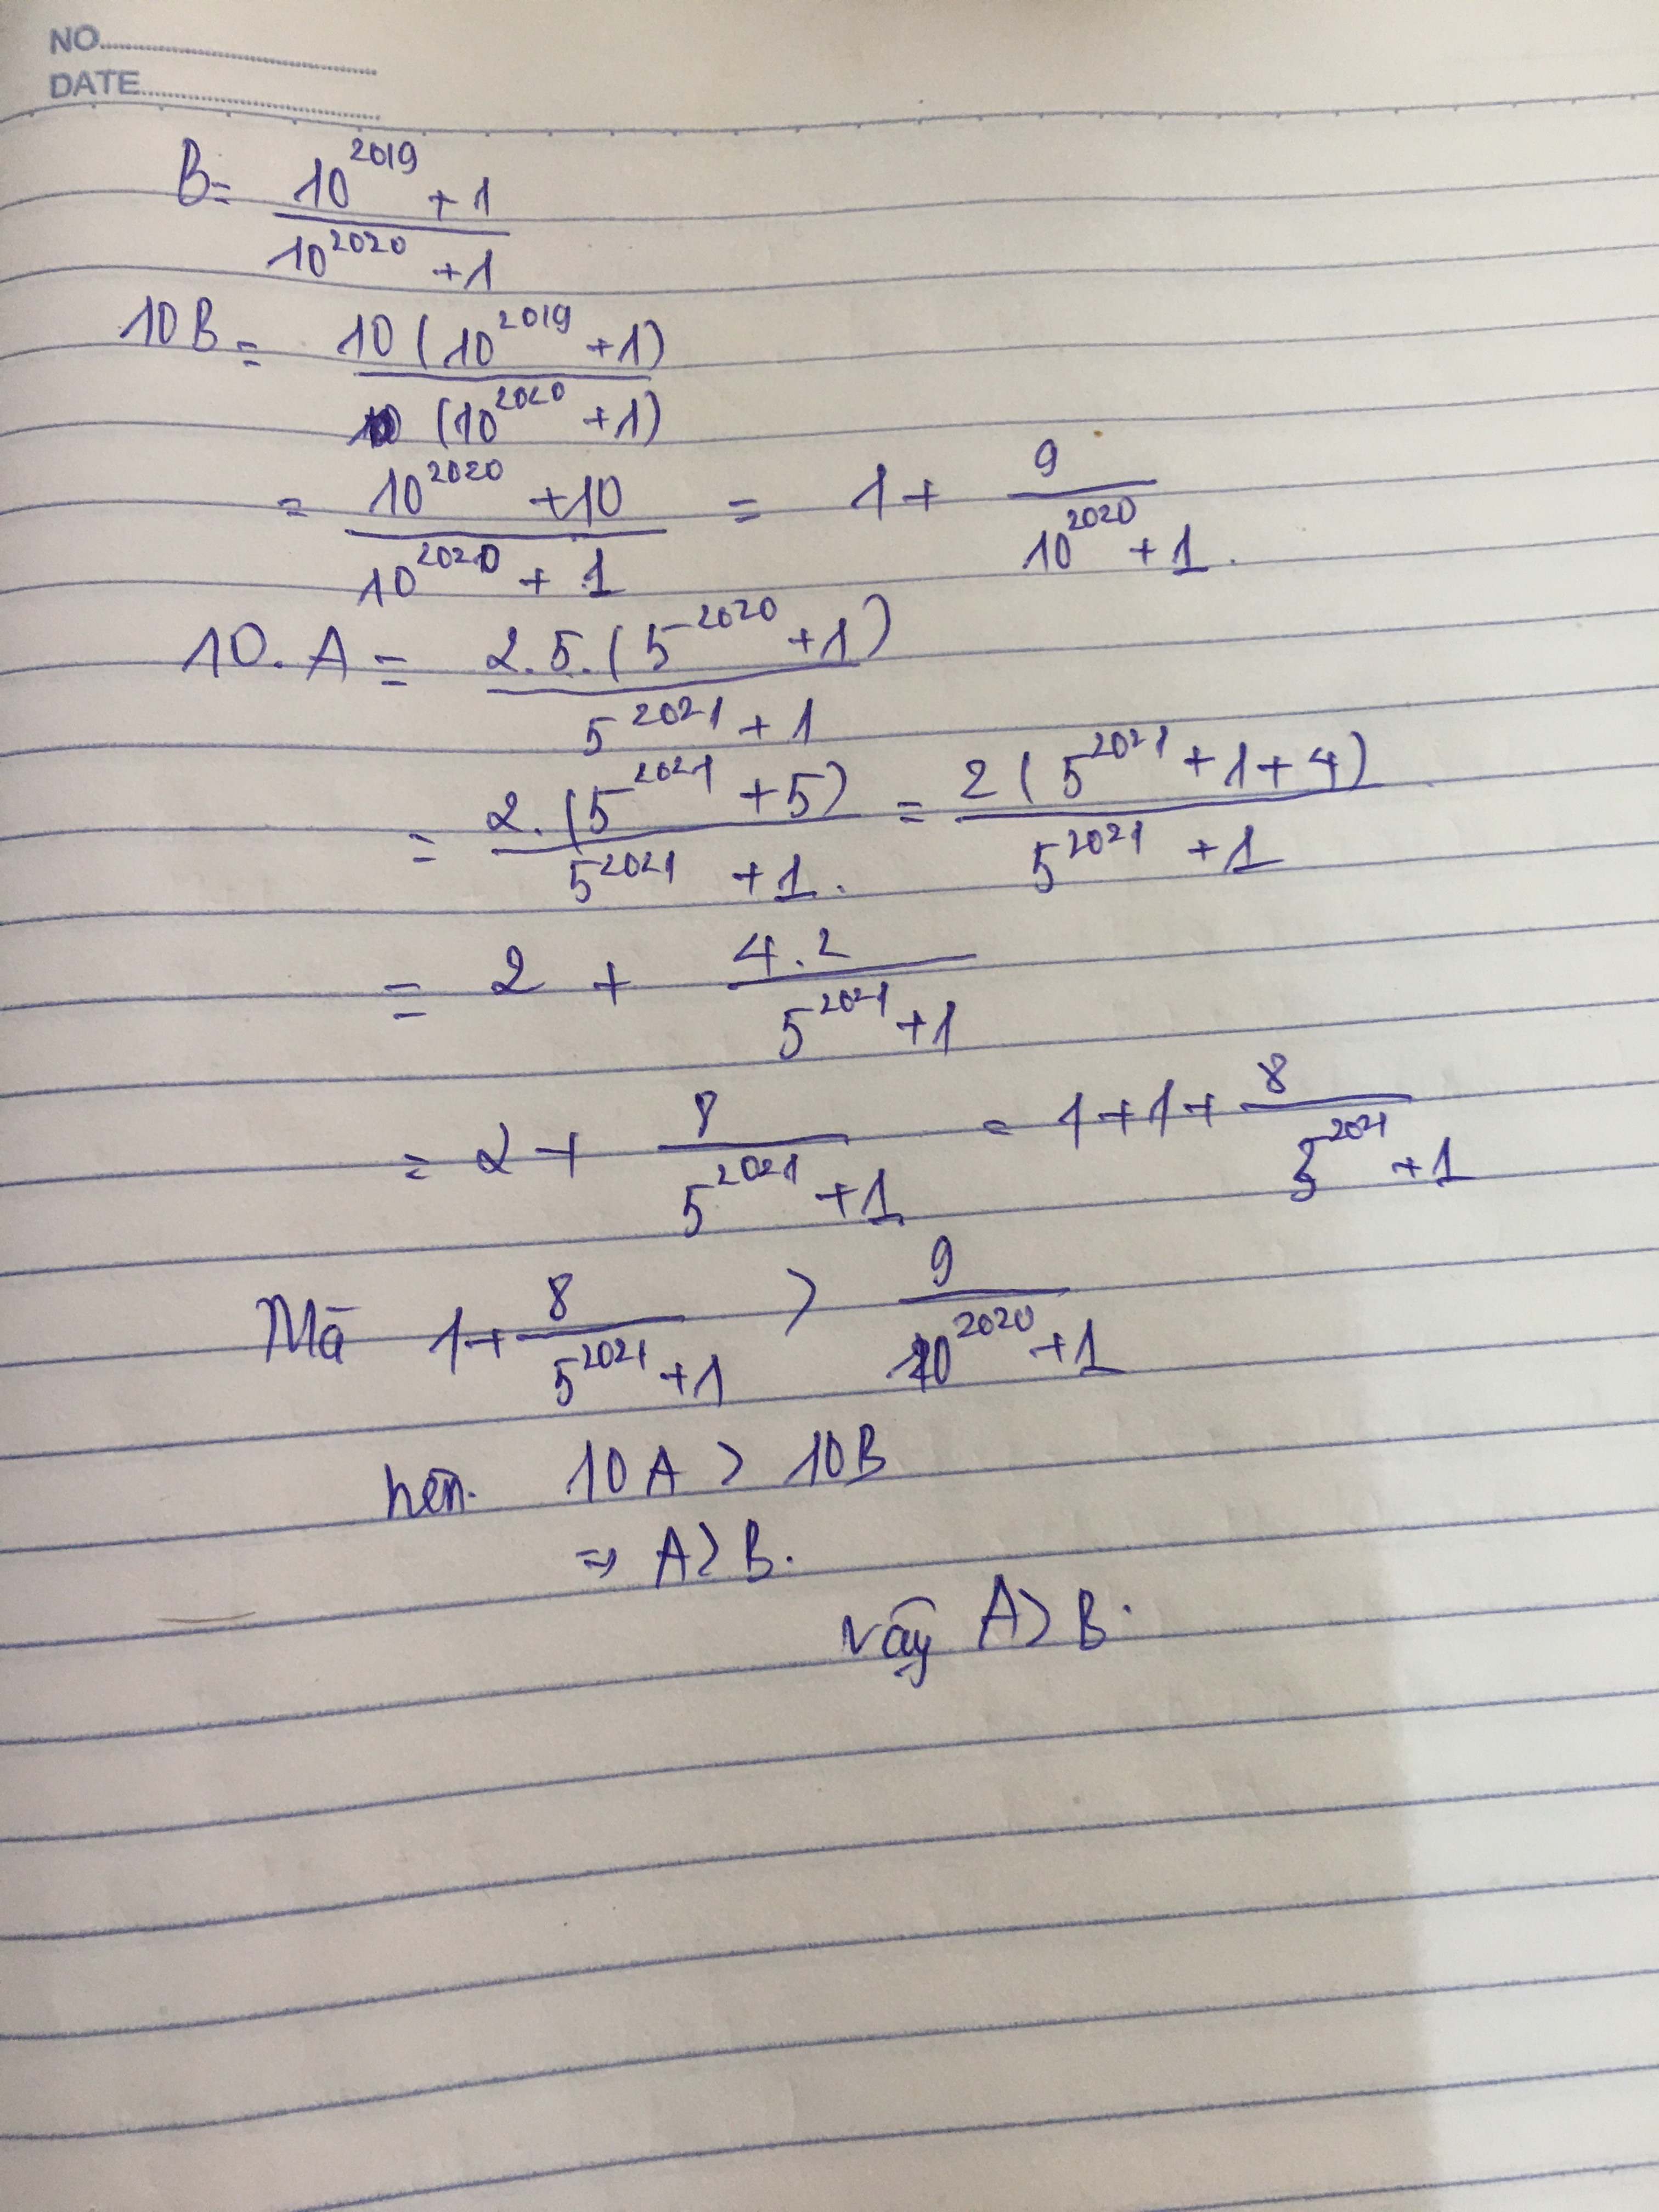 NO
DATE
B = \frac{10^{2019} + 1}{10^{2020} + 1}
10B = \frac{10(10^{2019} + 1)}{(10^{2020} + 1)}
= \frac{10^{2020} + 10}{10^{2020} + 1} = 1 + \frac{9}{10^{2020} + 1}.
10.A = \frac{2.5.(5^{2020} + 1)}{5^{2021} + 1}
= \frac{2.(5^{2021} + 5)}{5^{2021} + 1.} = \frac{2(5^{2021} + 1 + 4)}{5^{2021} + 1}
= 2 + \frac{4.2}{5^{2021} + 1}
= 2 + \frac{8}{5^{2021} + 1} = 1 + 1 + \frac{8}{5^{2021} + 1}
Mà 1 + \frac{8}{5^{2021} + 1} > \frac{9}{10^{2020} + 1}
nên. 10A > 10B
=> A > B.
Vậy A > B.